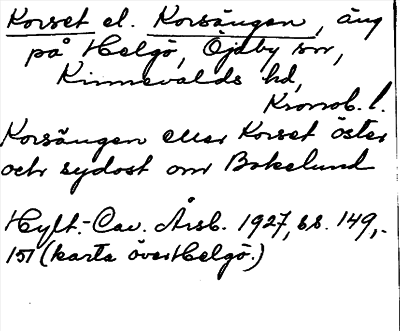 Korset el. Korsängen, äng
på Helgö, Öjaby sn,
Kinnevalds hd,
Kronob. l.
Korsängen eller Korset öster
och sydost om Bokelund
Hylt.-Cav. Årsb. 1927, s.s. 149,-
151 (karta över Helgö.)